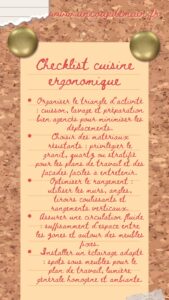 Checklist cuisine
ergonomique
• Organiser le triangle d'activité
: cuisson, lavage et préparation
bien agencés pour minimiser les
déplacements.
• Choisir des matériaux
résistants : privilégier le
granit, quartz ou stratifié
pour les plans de travail et des
façades faciles à entretenir.
• Optimiser le rangement :
utiliser les murs, angles,
tiroirs coulissants et
rangements verticaux.
• Assurer une circulation fluide
: suffisamment d'espace entre
les zones et autour des meubles
fixes.
• Installer un éclairage adapté
: spots sous meubles pour le
plan de travail, lumière
générale homogène et ambiante.